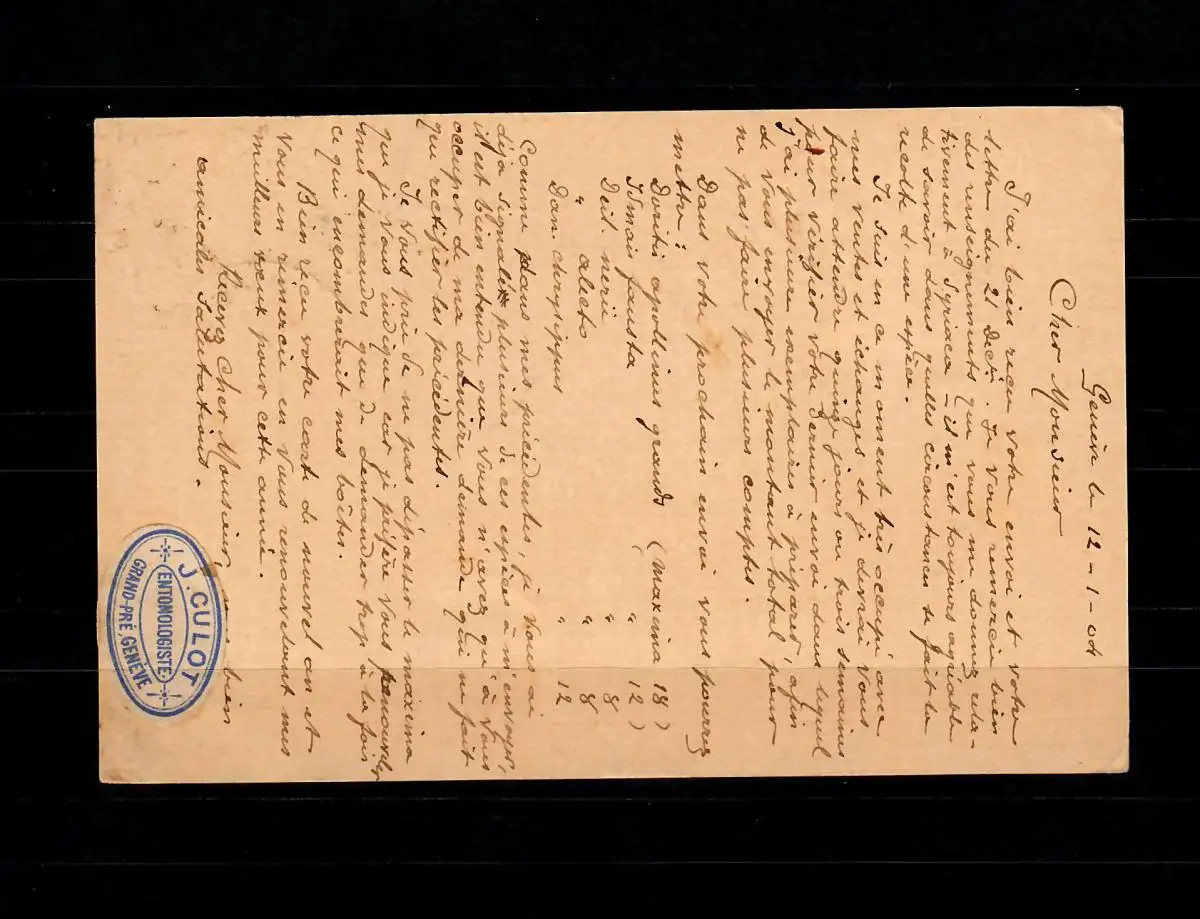 Genève le 12-1-04
Cher Monsieur
J'ai bien reçu votre envoi et votre
lettre du 21 Decbr. Je vous remercie bien
des renseignements que vous me donnez rela-
tivement à Syriaca - il m'est toujours agréable
de savoir dans quelles circonstances se fait la
récolte d'une espèce.
Je suis en ce moment très occupé avec
mes ventes et échanges et je devrai vous
faire attendre quinze jours ou trois semaines
pour vérifier votre dernier envoi dans lequel
j'ai plusieurs exemplaires à préparer, afin
de vous envoyer le montant total pour
ne pas faire plusieurs comptes.
Dans votre prochain envoi vous pourrez
mettre:
Doritis apollinus grands (maxima 18)
Ismais fausta " 12)
Deil. nerii " 8
" alecto " 8
Dan. chrysippus " 12
Comme dans mes précédentes, je vous ai
déja signalé plusieurs de ces espèces à m'envoyer,
il est bien entendu que vous n'avez qu'à vous
occuper de ma dernière demande qui ne fait
que rectifier les précédentes.
Je vous prie de ne pas dépasser le maxima
que je vous indique car je préfère vous renouveler
mes demandes que de demander trop à la fois
ce qui encombrerait mes boîtes.
Bien reçu votre carte de nouvel an et
vous en remercie en vous renouvelant mes
meilleurs vœux pour cette année.
Recevez Cher Monsieur, bien
amicales salutations.
J. CULOT
ENTOMOLOGISTE
GRAND-PRÉ, GENÈVE